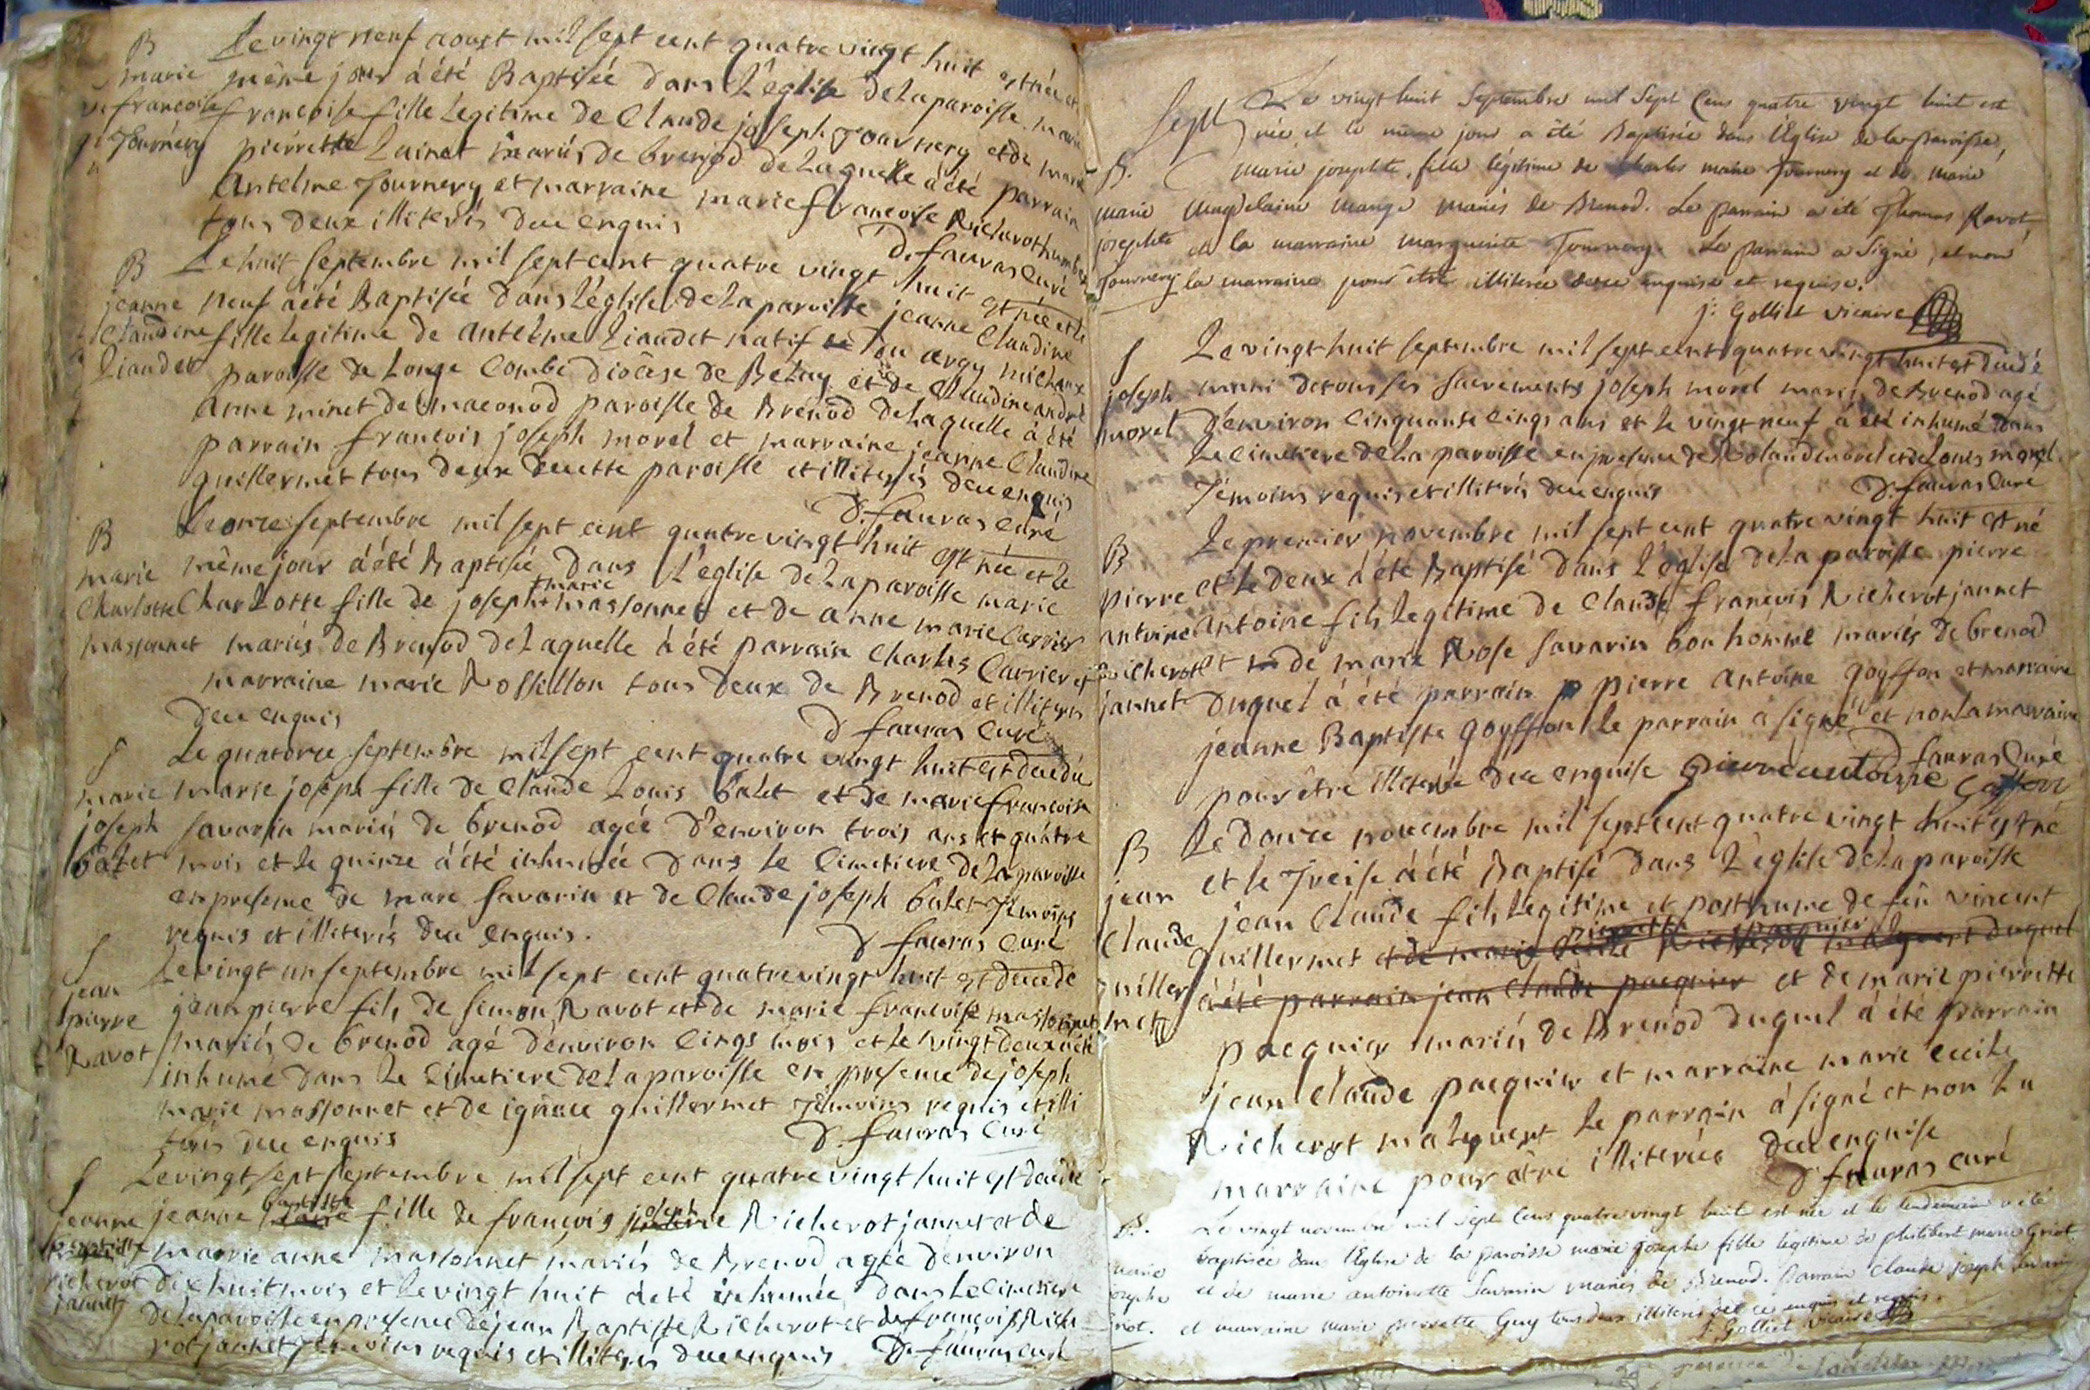 B Le vingt neuf aoust mil sept cent quatre vingt huit est née et
marie même jour à été Baptisée dans L'église de la paroisse marie
francoise francoise fille Legitime de Claude joseph Tournery et de marie
Tournery pierrette Luinet mariés de brenod de Laquelle à été parrain
Antelme Tournery et marraine marie francoise Richerot humbert
tous deux illiterés dece enquis
D. fauras Curé
B Le huit septembre mil sept cent quatre vingt huit est née et le
jeanne neuf à été Baptisée dans L'église de La paroisse jeanne Claudine
Claudine fille legitime de antelme Liaudet natif du argy michaux
Liaudet paroisse de Longe Combe diocèse de Belay et de Claudine andré
anne minet de maconod paroisse de Brenod de Laquelle à été
parrain francois joseph morel et marraine jeanne Claudine
guillermet tous deux de cette paroisse et illiterés dece enquis
D. fauras Curé
B Le onze septembre mil sept cent quatre vingt huit est née et Le
marie même jour à été Baptisée dans L'église de La paroisse marie
Charlotte Charlotte fille de joseph + marie massonnet et de anne marie Carrier
massonnet mariés de Brenod de Laquelle à été parrain Charles Carrier et
marraine marie Rossillon tous deux de Brenod et illiterés
dece enquis
D fauras Curé
S Le quatorze septembre mil sept cent quatre vingt huit est decedée
marie marie joseph fille de Claude Louis balet et de marie francoise
joseph savarin mariés de brenod agée d'environ trois ans et quatre
balet mois et le quinze à été inhumée dans le Cimetiere de La paroisse
en presence de marc savarin et de Claude joseph balet Témoins
requis et illiterés dece enquis.
D fauras Curé
S Le vingt un septembre mil sept cent quatre vingt huit est decedé
jean jean pierre fils de simon Ravot et de marie francoise massonnet
pierre mariés de brenod agé d'environ cinqs mois et le vingt deux à été
Ravot inhumé dans Le Cimetiere de La paroisse en presence de joseph
marie massonnet et de ignace guillermet Témoins requis et illi
terés dece enquis
D. fauras Curé
S Le vingt sept septembre mil sept cent quatre vingt huit est decedée
jeanne jeanne baptiste fille de françois joseph Richerot jannet et de
baptiste marie anne massonnet mariés de Brenod agée d'environ
richerot dix huit mois et Le vingt huit à été inhumée dans Le Cimetiere
jannet de La paroisse en presence de jean Baptiste Richerot et de françois Riche
rot jannet Témoins requis et illiterés dece enquis D. fauras Curé
Sept Le vingt huit Septembre mil Sept Cens quatre vingt huit est
née et le même jour a été Baptisée dans l'Eglise de la Paroisse,
B. marie josephte, fille légitime de Charles marie Tournery et de marie
marie Magdelaine Mange mariés de Brenod. Le Parrain a été Thomas Ravot,
josephte et la marraine marguerite Tournery. Le Parrain a Signé, et non
Tournery la marraine pour être illiterée dece enquise et requise.
j: Golliet Vicaire
S Le vingt huit septembre mil sept cent quatre vingt huit est decedé
joseph muni de tous ses sacrements joseph morel mariés de Brenod agé
morel d'environ cinquante cinqs ans et le vingt neuf à été inhumé dans
Le Cimetiere de La paroisse en presence de Claude morel et de Louis morel
Témoins requis et illiterés dece enquis
D. fauras Curé
B Le premier novembre mil sept cent quatre vingt huit est né
pierre et le deux à été Baptisé dans L'église de La paroisse pierre
antoine antoine fils legitime de Claude françois Richerot jannet
Richerot et de marie Rose savarin bon homme mariés de brenod
jannet duquel à été parrain pierre antoine goyffon et marraine
jeanne Baptiste goyffon le parrain à signé et non la marraine
pour être illiterée dece enquise
D fauras Curé
pierre antoine Goffon
B Le douze novembre mil sept cent quatre vingt huit est né
et le Treise à été Baptisé dans L'église de La paroisse
jean jean Claude fils Legitime et posthume de feu vincent
Claude guillermet et de marie pierrette Richerot duquel
guiller à été parrain jean Claude pacquier et de marie pierrette
met pacquier mariés de Brenod duquel à été parrain
jean Claude pacquier et marraine marie cecile
Richerot malquert le parrain à signé et non La
marraine pour être illiterée dece enquise
D fauras curé
B. Le vingt novembre mil Sept Cens quatre vingt huit est née et le lendemain a été
baptisée dans l'Eglise de la paroisse marie josephe fille legitime de philibert marie Griot
marie et de marie antoinette Savarin mariés de Brenod. Parrain Claude joseph Savarin
josephe et marraine marie pierrette Guy tous deux illiterés de ce enquis et requis.
Griot.
J. Golliet Vicaire